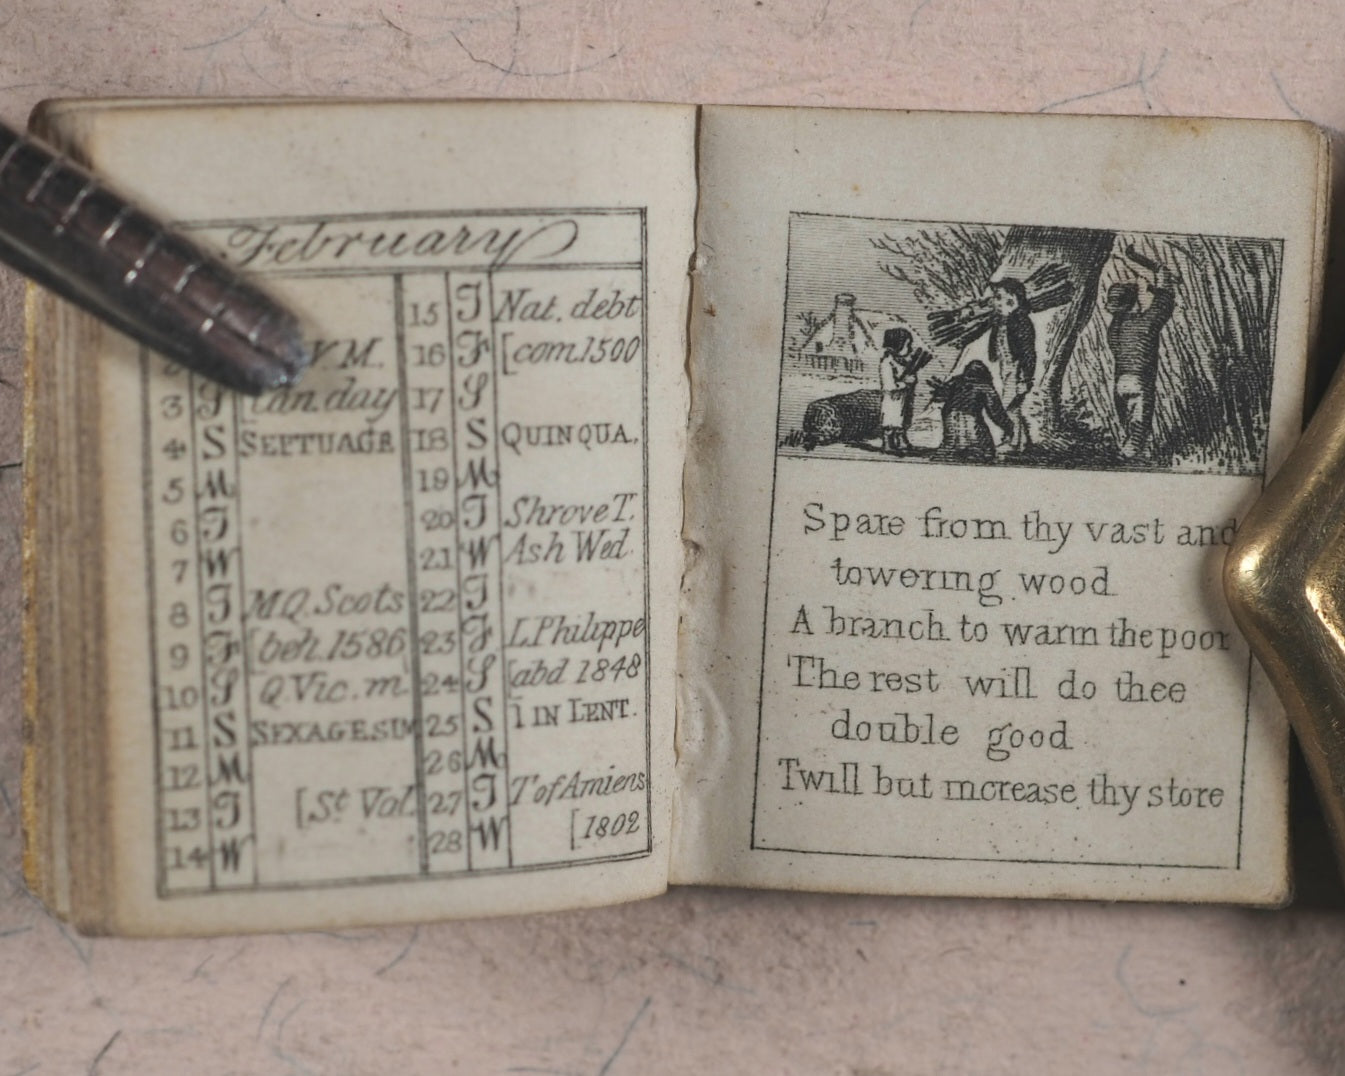 February
V.M.
3 T Can. day
4 S SEPTUAGE
5 M
6 T
7 W
8 T M.Q. Scots
9 F [beh. 1586
10 S Q. Vic. m.
11 S SEXAGESIM
12 M
13 T [St Val.
14 W
15 T Nat. debt
16 F [com. 1500
17 S
18 S QUINQUA.
19 M
20 T Shrove T.
21 W Ash Wed.
22 T
23 F L Philippe
24 S [abd 1848
25 S 1 IN LENT.
26 M
27 T T of Amiens
28 W [1802
Spare from thy vast and
towering wood
A branch to warm the poor
The rest will do thee
double good
Twill but increase thy store